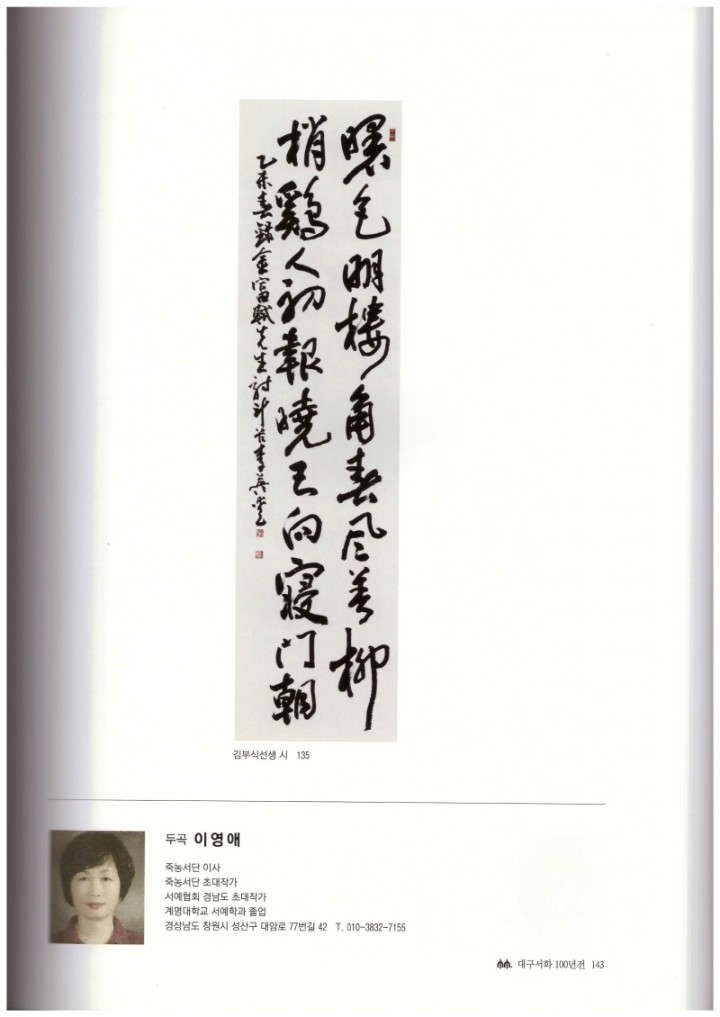 曙色明樓角春風着柳
梢鷄人初報曉已向寢門朝
乙未春錄金富軾先生詩斗谷李英愛
김부식선생 시 135
두곡 이영애
죽농서단 이사
죽농서단 초대작가
서예협회 경남도 초대작가
계명대학교 서예학과 졸업
경상남도 창원시 성산구 대암로 77번길 42 T. 010-3832-7155
대구서화 100년전 143